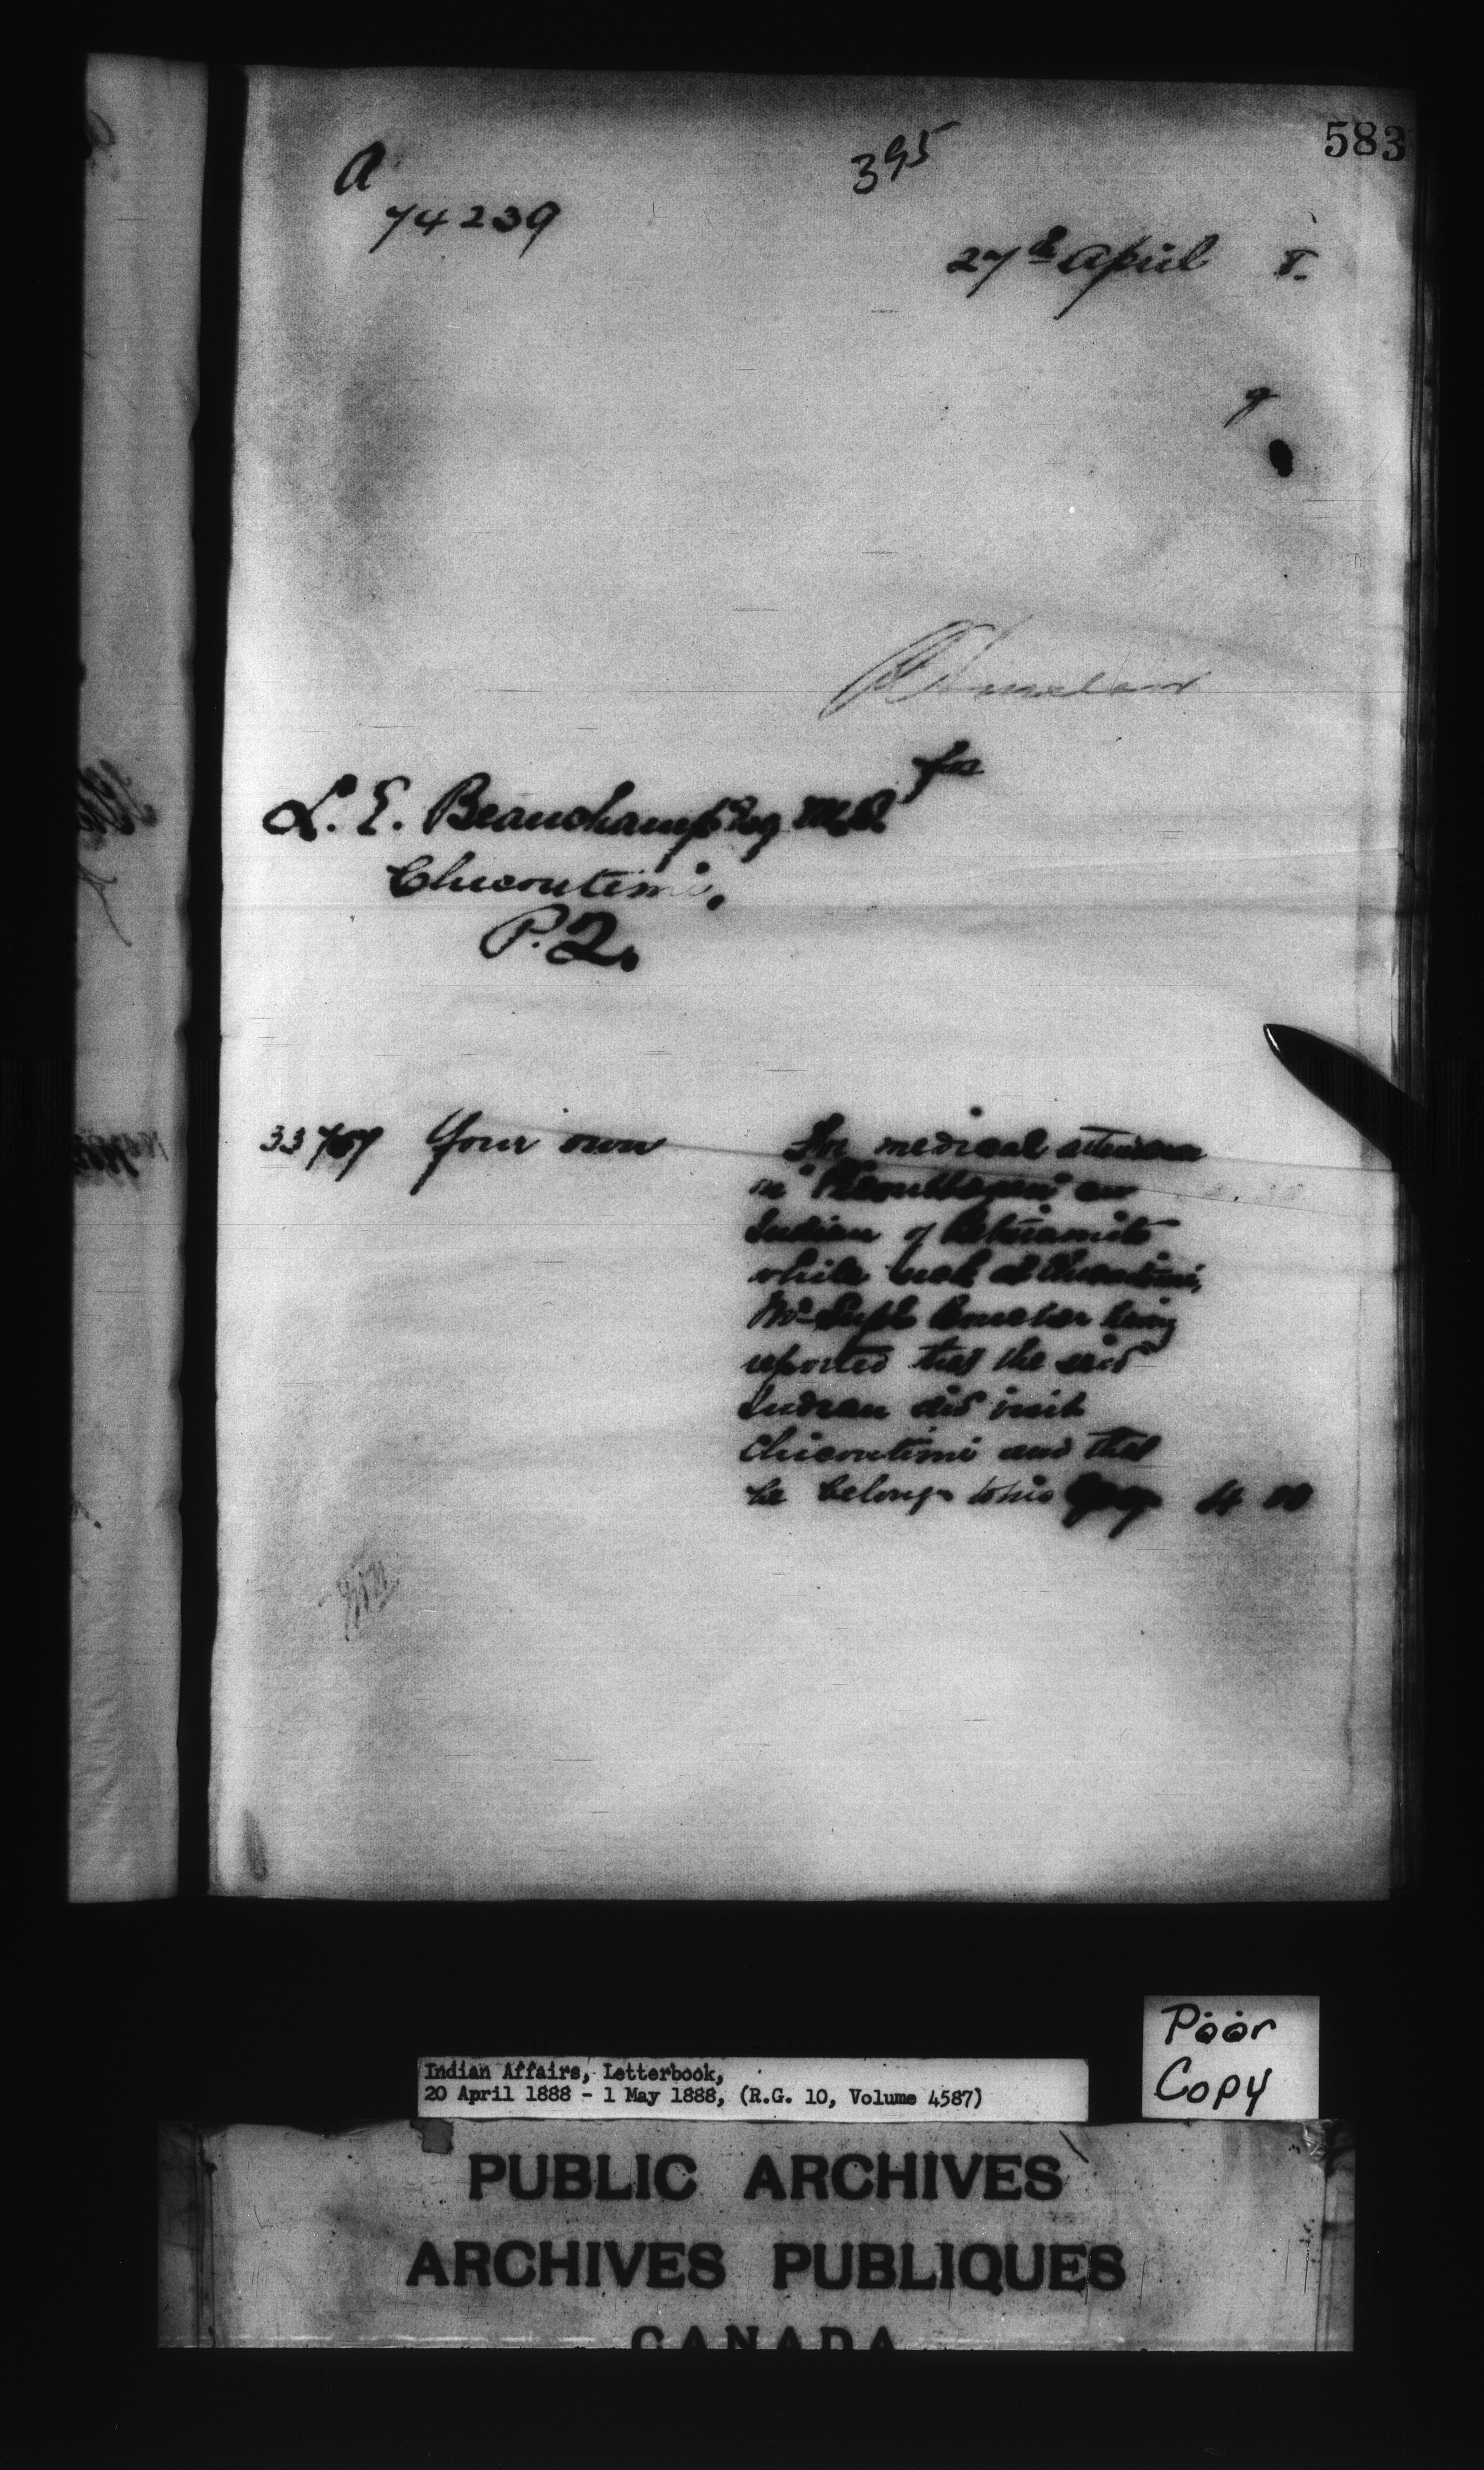 583
395
A
74239
27th April 8.
for
L. E. Beauchamp Esq M.D.
Chicoutimi,
P.Q.
Your own
For medical attendance
an
Indian of Betsiamits
while sick at Chicoutimi,
Mr Supt Boucher having
reported that the said
Indian did visit
Chicoutimi and that
he belongs to his 4 00
Poor
Copy
Indian Affairs, Letterbook,
20 April 1888 - 1 May 1888, (R.G. 10, Volume 4587)
PUBLIC ARCHIVES
ARCHIVES PUBLIQUES
CANADA